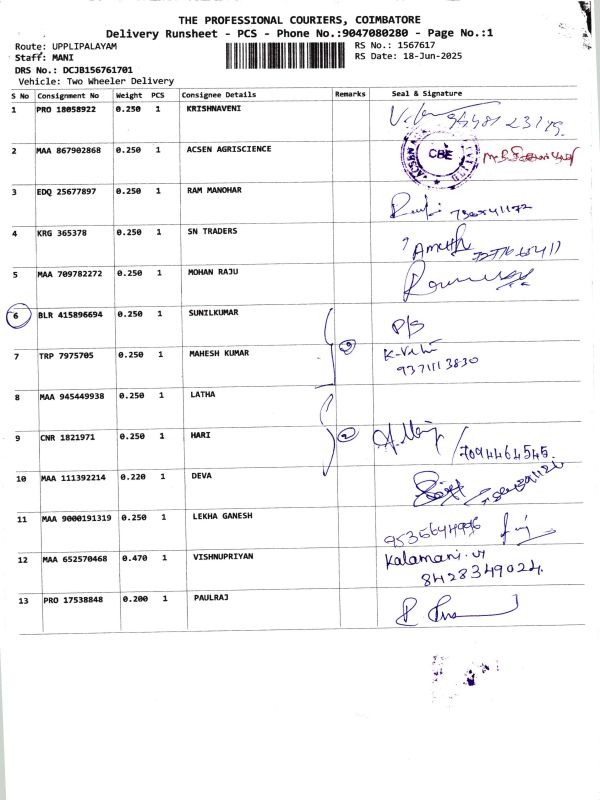 THE PROFESSIONAL COURIERS, COIMBATORE
Delivery Runsheet - PCS - Phone No.:9047080280 - Page No.:1
Route: UPPLIPALAYAM
RS No.: 1567617
Staff: MANI
RS Date: 18-Jun-2025
DRS No.: DCJB156761701
Vehicle: Two Wheeler Delivery
S No Consignment No Weight PCS Consignee Details Remarks Seal & Signature
1 PRO 18058922 0.250 1 KRISHNAVENI
2 MAA 867902868 0.250 1 ACSEN AGRISCIENCE CBE
3 EDQ 25677897 0.250 1 RAM MANOHAR
4 KRG 365378 0.250 1 SN TRADERS
5 MAA 709782272 0.250 1 MOHAN RAJU
6 BLR 415896694 0.250 1 SUNILKUMAR P/S
7 TRP 7975705 0.250 1 MAHESH KUMAR
8 MAA 945449938 0.250 1 LATHA
9 CNR 1821971 0.250 1 HARI 7094464545
10 MAA 111392214 0.220 1 DEVA
11 MAA 9000191319 0.250 1 LEKHA GANESH
12 MAA 652570468 0.470 1 VISHNUPRIYAN Kalamani. M
8428349024.
13 PRO 17538848 0.200 1 PAULRAJ